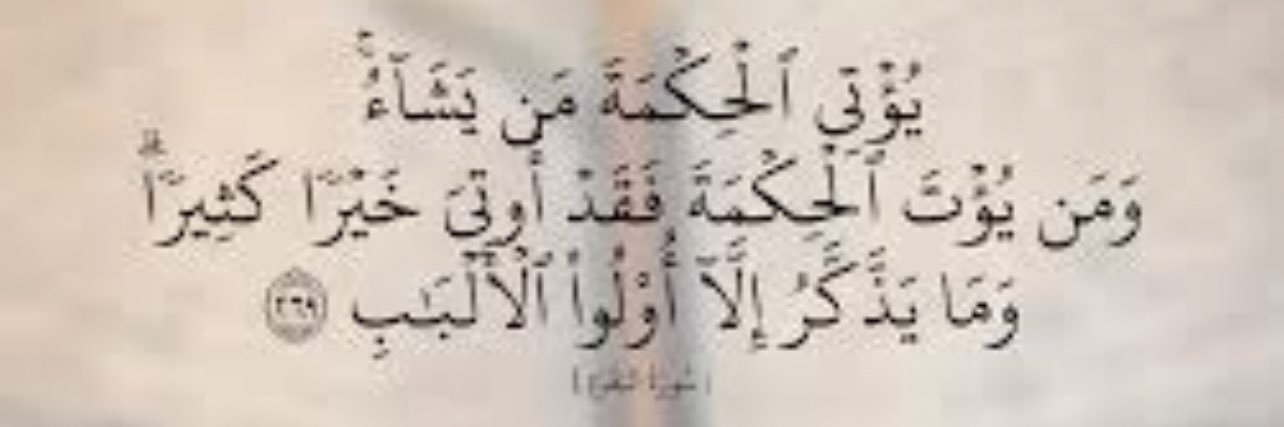 يُؤْتِي ٱلْحِكْمَةَ مَن يَشَآءُ ۚ
وَمَن يُؤْتَ ٱلْحِكْمَةَ فَقَدْ أُوتِىَ خَيْرًا كَثِيرًا ۗ
وَمَا يَذَّكَّرُ إِلَّآ أُو۟لُوا۟ ٱلْأَلْبَـٰبِ ٢٦٩
[سورة البقرة]